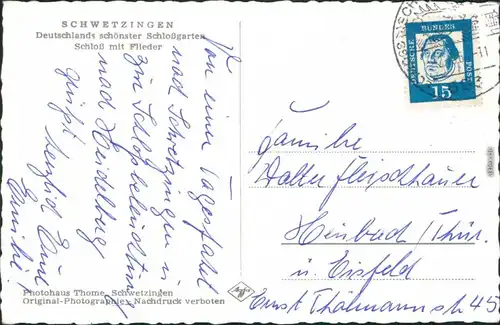 SCHWETZINGEN
Deutschlands schönster Schloßgarten
Schloß mit Flieder
Von einer Tagesfahrt
nach Schwetzingen u
zur Schloßbeleuchtung
nach Heidelberg
grüßt herzlich Eure
Emilie
Photohaus Thome, Schwetzingen
Original-Photographie, Nachdruck verboten
Agfa
DEUTSCHE BUNDESPOST
15
Familie
Walter Fleischhauer
Heubach/Thür.
ü. Eisfeld
Ernst Thälmannstr 45